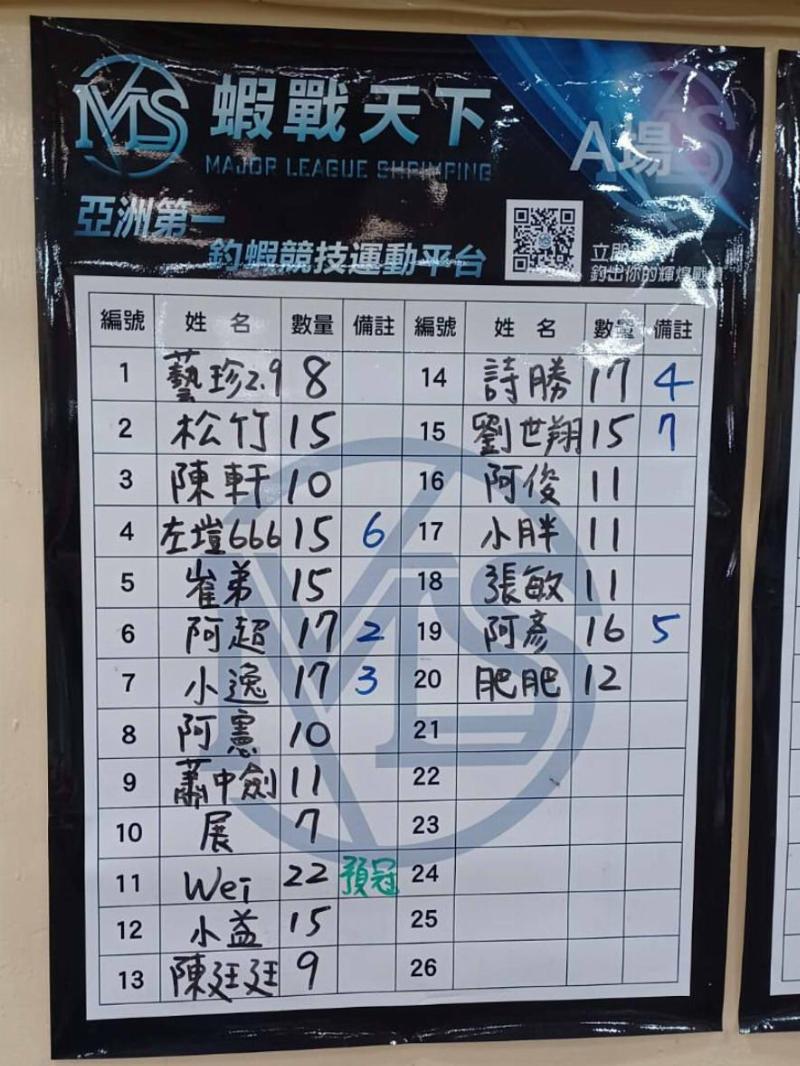 MLS 蝦戰天下 A場
MAJOR LEAGUE SHRIMPING
亞洲第一
釣蝦競技運動平台
釣出你的輝煌戰
編號 姓名 數量 備註 編號 姓名 數量 備註
1 藝珍2.9 8 14 詩勝 17 4
2 松竹 15 15 劉世翔 15 7
3 陳軒 10 16 阿俊 11
4 左塏666 15 6 17 小胖 11
5 崔弟 15 18 張敏 11
6 阿超 17 2 19 阿彥 16 5
7 小逸 17 3 20 肥肥 12
8 阿憲 10 21
9 蕭中劍 11 22
10 展 7 23
11 Wei 22 預冠 24
12 小益 15 25
13 陳廷廷 9 26